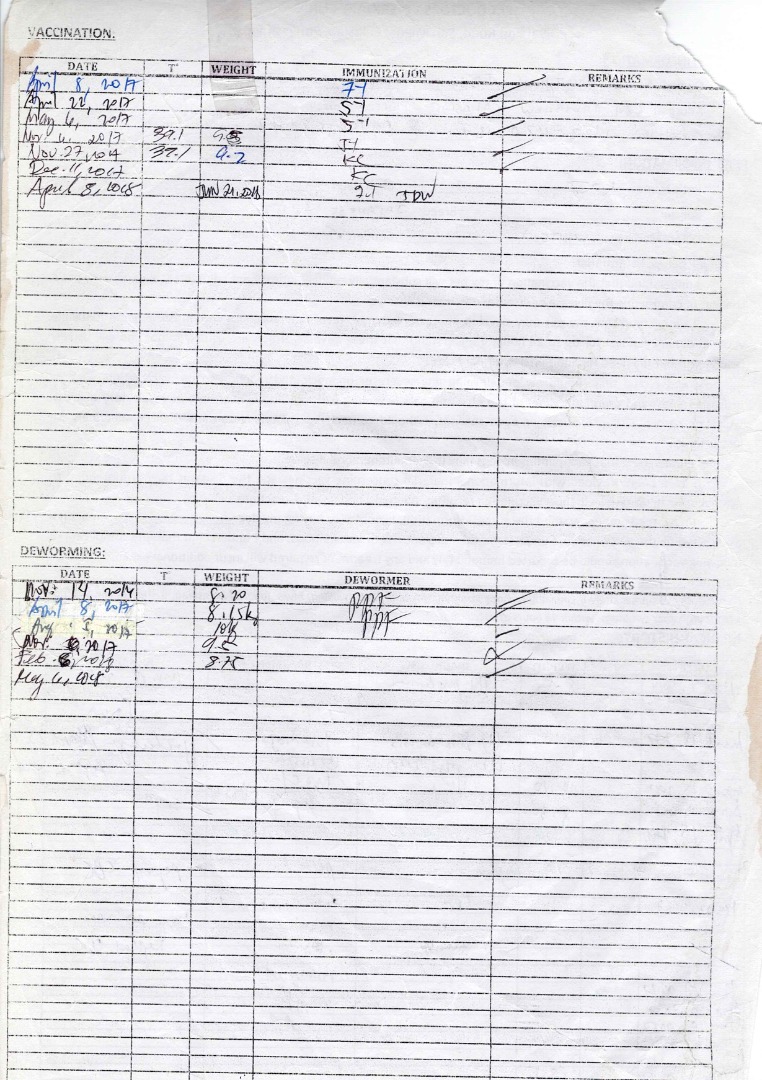 VACCINATION:
DATE T° WEIGHT IMMUNIZATION REMARKS
April 8, 2017
April 22, 2017 5-1
May 6, 2017 5-1
Nov. 6, 2017 39.1
Nov. 27, 2017 39.1 9.2 KC
Dec. 11, 2017 KC
April 8, 2018 JUN 21, 2018
DEWORMING:
DATE T° WEIGHT DEWORMER REMARKS
Nov. 14, 8.20 PPF
April 8, 2017 8.15kg PPF
Aug. 5, 2017
Nov. 2017 9.5
Feb. 6, 2018 8.75
May 6, 2018